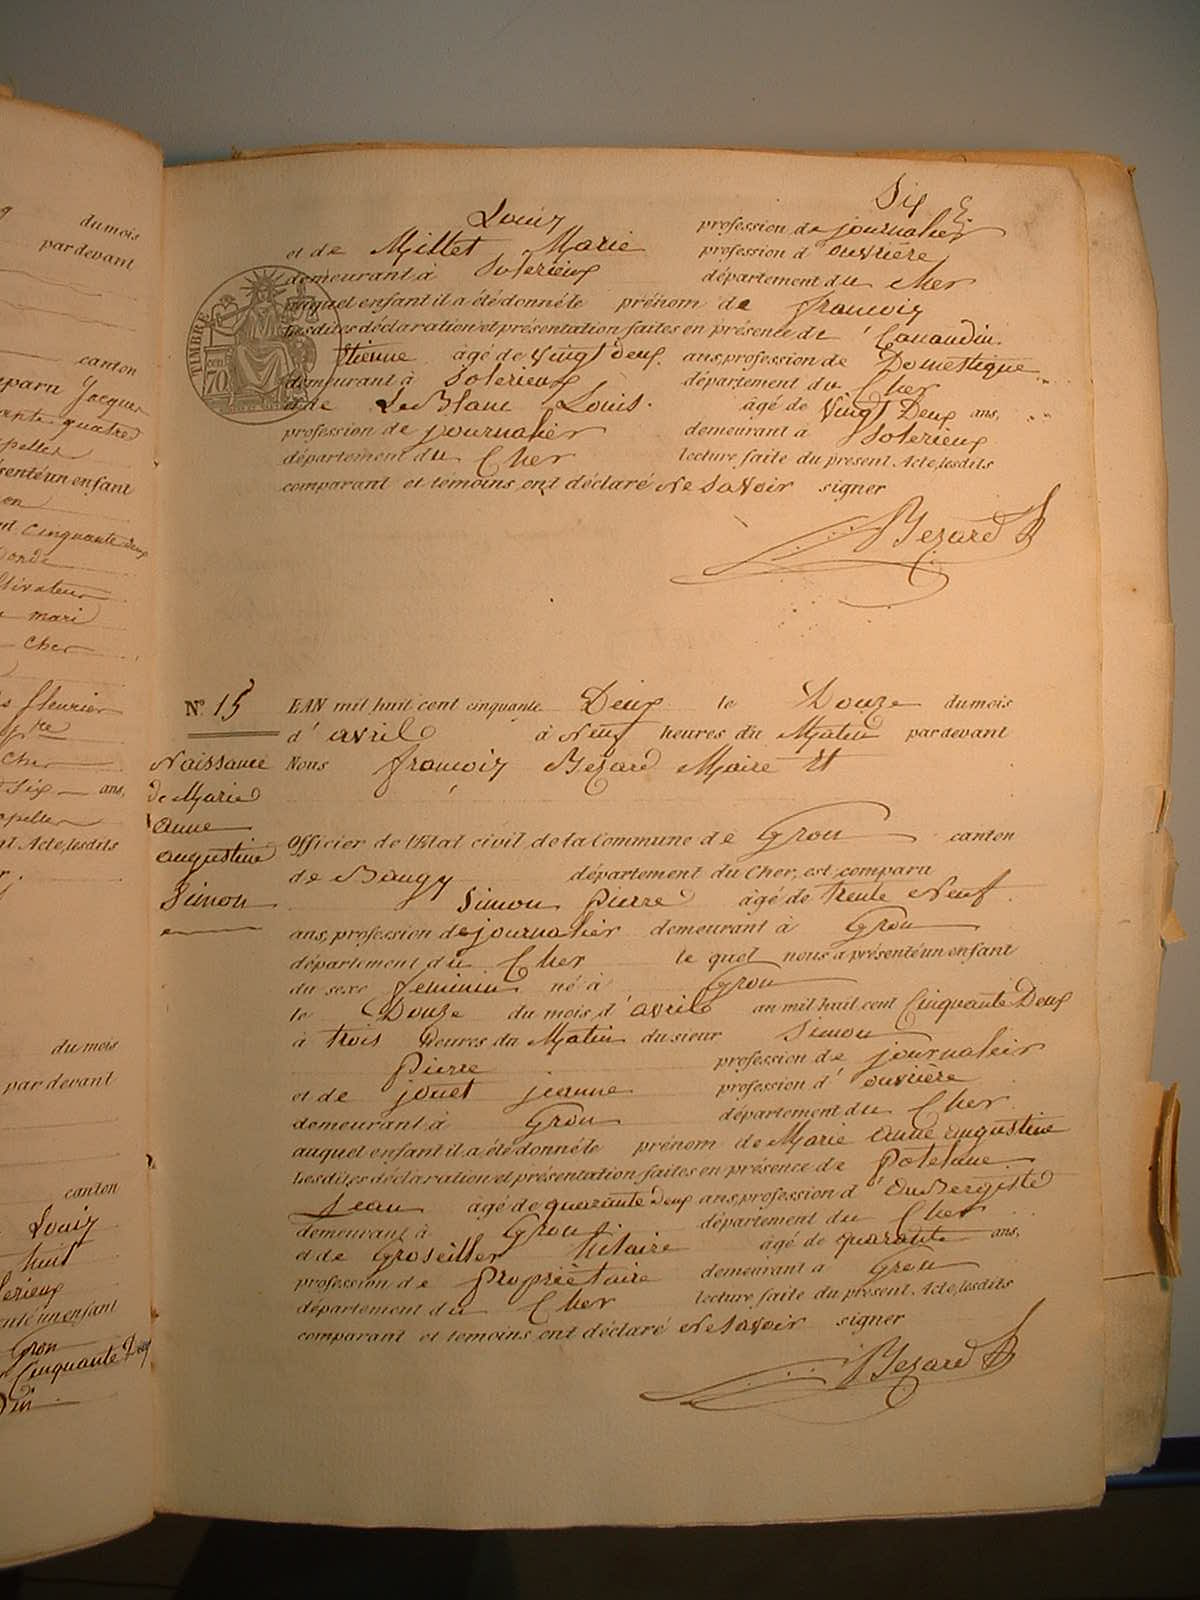 g du mois
par devant
canton
mparu Jacques
ante quatre
senté un enfant
nt cinquante deux
ltivateur
mari
Cher
fleurier
Cher
Six ans,
nt Acte, lesdits
du mois
par devant
canton
Louis
huit
lerieux
enté un enfant
Gron
Cinquante Deux
Six
Louis profession de journalier
et de Millet Marie profession d'ouvrière
demeurant à Solerieux département du Cher
auquel enfant il a été donné le prénom de francois
Lesdites déclaration et présentation faites en présence de
Etienne âgé de Vingt deux ans, profession de Domestique
demeurant à Solerieux département du Cher
et de LeBlanc Louis. âgé de Vingt Deux ans,
profession de journalier demeurant à Solerieux
département du Cher lecture faite du présent Acte, lesdits
comparant et témoins ont déclaré Ne Savoir signer
Bezard
TIMBRE
70
Nº 15
Naissance
de Marie
anne
augustine
Simon
L'AN mil huit cent cinquante Deux le Douze du mois
d'avril à Neuf heures du Matin par devant
Nous francois Bezard Maire Et
Officier de l'Etat civil de la Commune de Gron canton
de Baugy département du Cher, est comparu
Simon Pierre âgé de trente Neuf
ans, profession de journalier demeurant à Gron
département du Cher le quel nous a présenté un enfant
du sexe feminin né à Gron
le Douze du mois d'avril an mil huit cent Cinquante Deux
à trois heures du Matin du sieur Simon
Pierre profession de journaleir
et de jouet jeanne profession d'ouvrière
demeurant à Gron département du Cher
auquel enfant il a été donné le prénom de Marie anne augustine
Lesdites déclaration et présentation faites en présence de Potelune
Jean âgé de quarante deux ans, profession d'Aubergiste
demeurant à Gron département du Cher
et de Groseiller hilaire âgé de quarante ans,
profession de Propriètaire demeurant à Gron
département du Cher lecture faite du présent Acte, lesdits
comparant et témoins ont déclaré Ne Savoir signer
Bezard